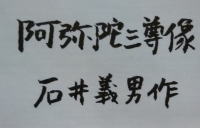 阿弥陀三尊像
石井義男作